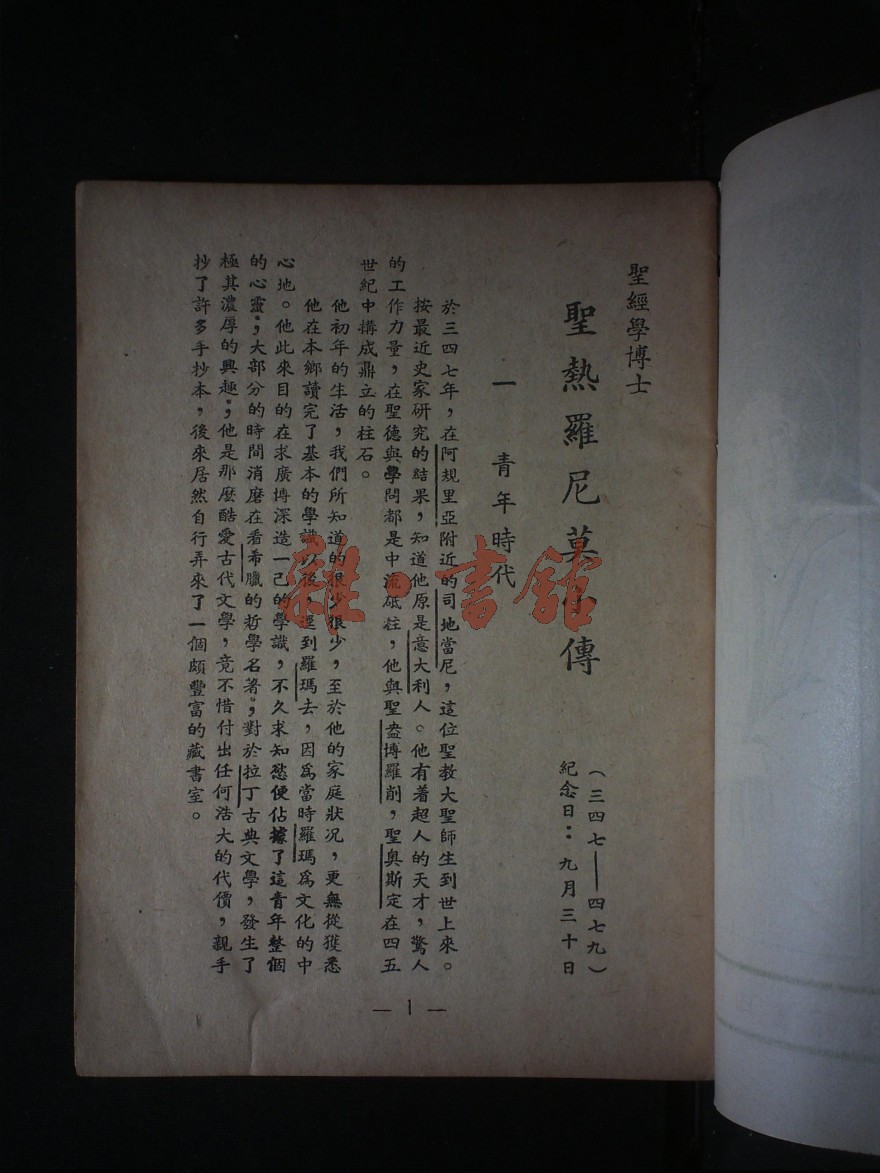 聖經學博士
聖熱羅尼莫小傳
（三四七——四七九）
紀念日：九月三十日
一 青年時代
於三四七年，在阿規里亞附近的司地當尼，這位聖教大聖師生到世上來。
按最近史家研究的結果，知道他原是意大利人。他有着超人的天才，驚人
的工作力量，在聖德與學問都是中流砥柱，他與聖盎博羅削，聖奧斯定在四五
世紀中搆成鼎立的柱石。
他初年的生活，我們所知道的很少很少，至於他的家庭狀况，更無從獲悉
他在本鄉讀完了基本的學識以後，逕到羅瑪去，因爲當時羅瑪爲文化的中
心地。他此來目的在求廣博深造一己的學識，不久求知慾便佔據了這青年整個
的心靈；大部分的時間消磨在看希臘的哲學名著；對於拉丁古典文學，發生了
極其濃厚的興趣；他是那麼酷愛古代文學，竟不惜付出任何浩大的代價，親手
抄了許多手抄本，後來居然自行弄來了一個頗豐富的藏書室。
— 1 —
雜·書館